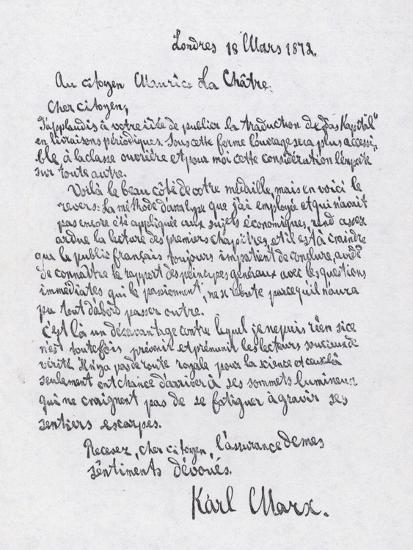 Londres 18 Mars 1872.
Au citoyen Maurice La Châtre.
Cher citoyen,
J'applaudis à votre idée de publier la traduction de „Das Kapital"
en livraisons périodiques. Sous cette forme l'ouvrage sera plus accessi,
ble à la classe ouvrière et pour moi cette considération l'emporte
sur toute autre.
Voilà le beau côté de votre médaille, mais en voici le
revers: La méthode d'analyse que j'ai employée et qui n'avait
pas encore été appliquée aux sujets économiques, rend assez
ardue la lecture des premiers chapitres, et il est à craindre
que le public français toujours impatient de conclure, avide
de connaître le rapport des principes généraux avec les questions
immédiates qui le passionnent, ne se rebute parce qu'il n'aura
pu tout d'abord passer outre.
C'est là un désavantage contre lequel je ne puis rien si ce
n'est toutefois prévenir et prémunir les lecteurs soucieux de
vérité. Il n'y a pas de route royale pour la science et ceux là
seulement ont chance d'arriver à ses sommets lumineux
qui ne craignent pas de se fatiguer à gravir ses
sentiers escarpés.
Recevez, cher citoyen, l'assurance de mes
sentiments dévoués.
Karl Marx.